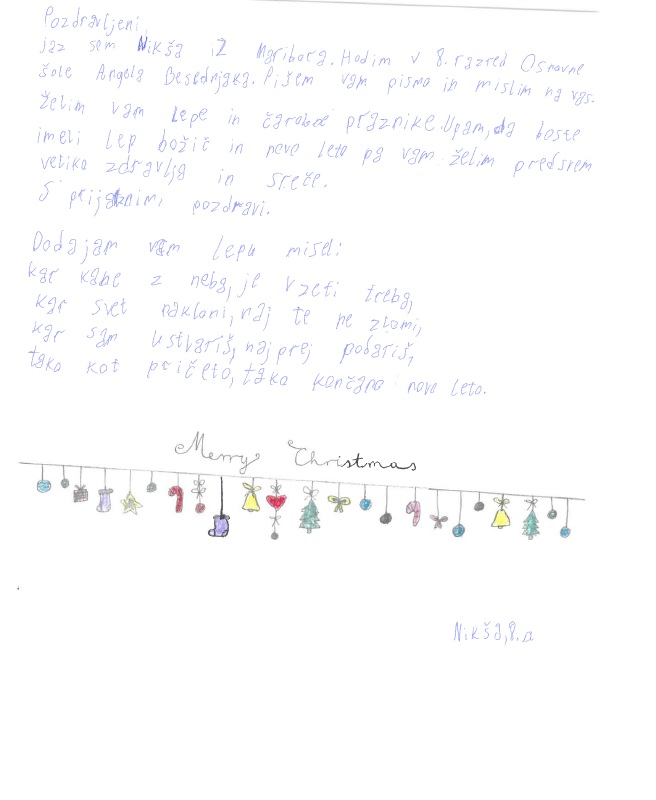 Pozdravljeni,
jaz sem Nikša iz Maribora. Hodim v 8. razred Osnovne
šole Angela Besednjaka. Pišem vam pismo in mislim na vas.
Želim vam lepe in čarobne praznike. Upam, da boste
imeli lep božič in novo leto pa vam želim predvsem
veliko zdravlja in sreče.
S prijaznimi pozdravi.
Dodajam vam lepu misel:
kar kane z neba, je vzeti treba,
kar svet nakloni, naj te ne zlomi,
kar sam ustvariš, najprej podariš,
tako kot pričeto, tako končano novo leto.
Merry Christmas
Nikša, 8.a